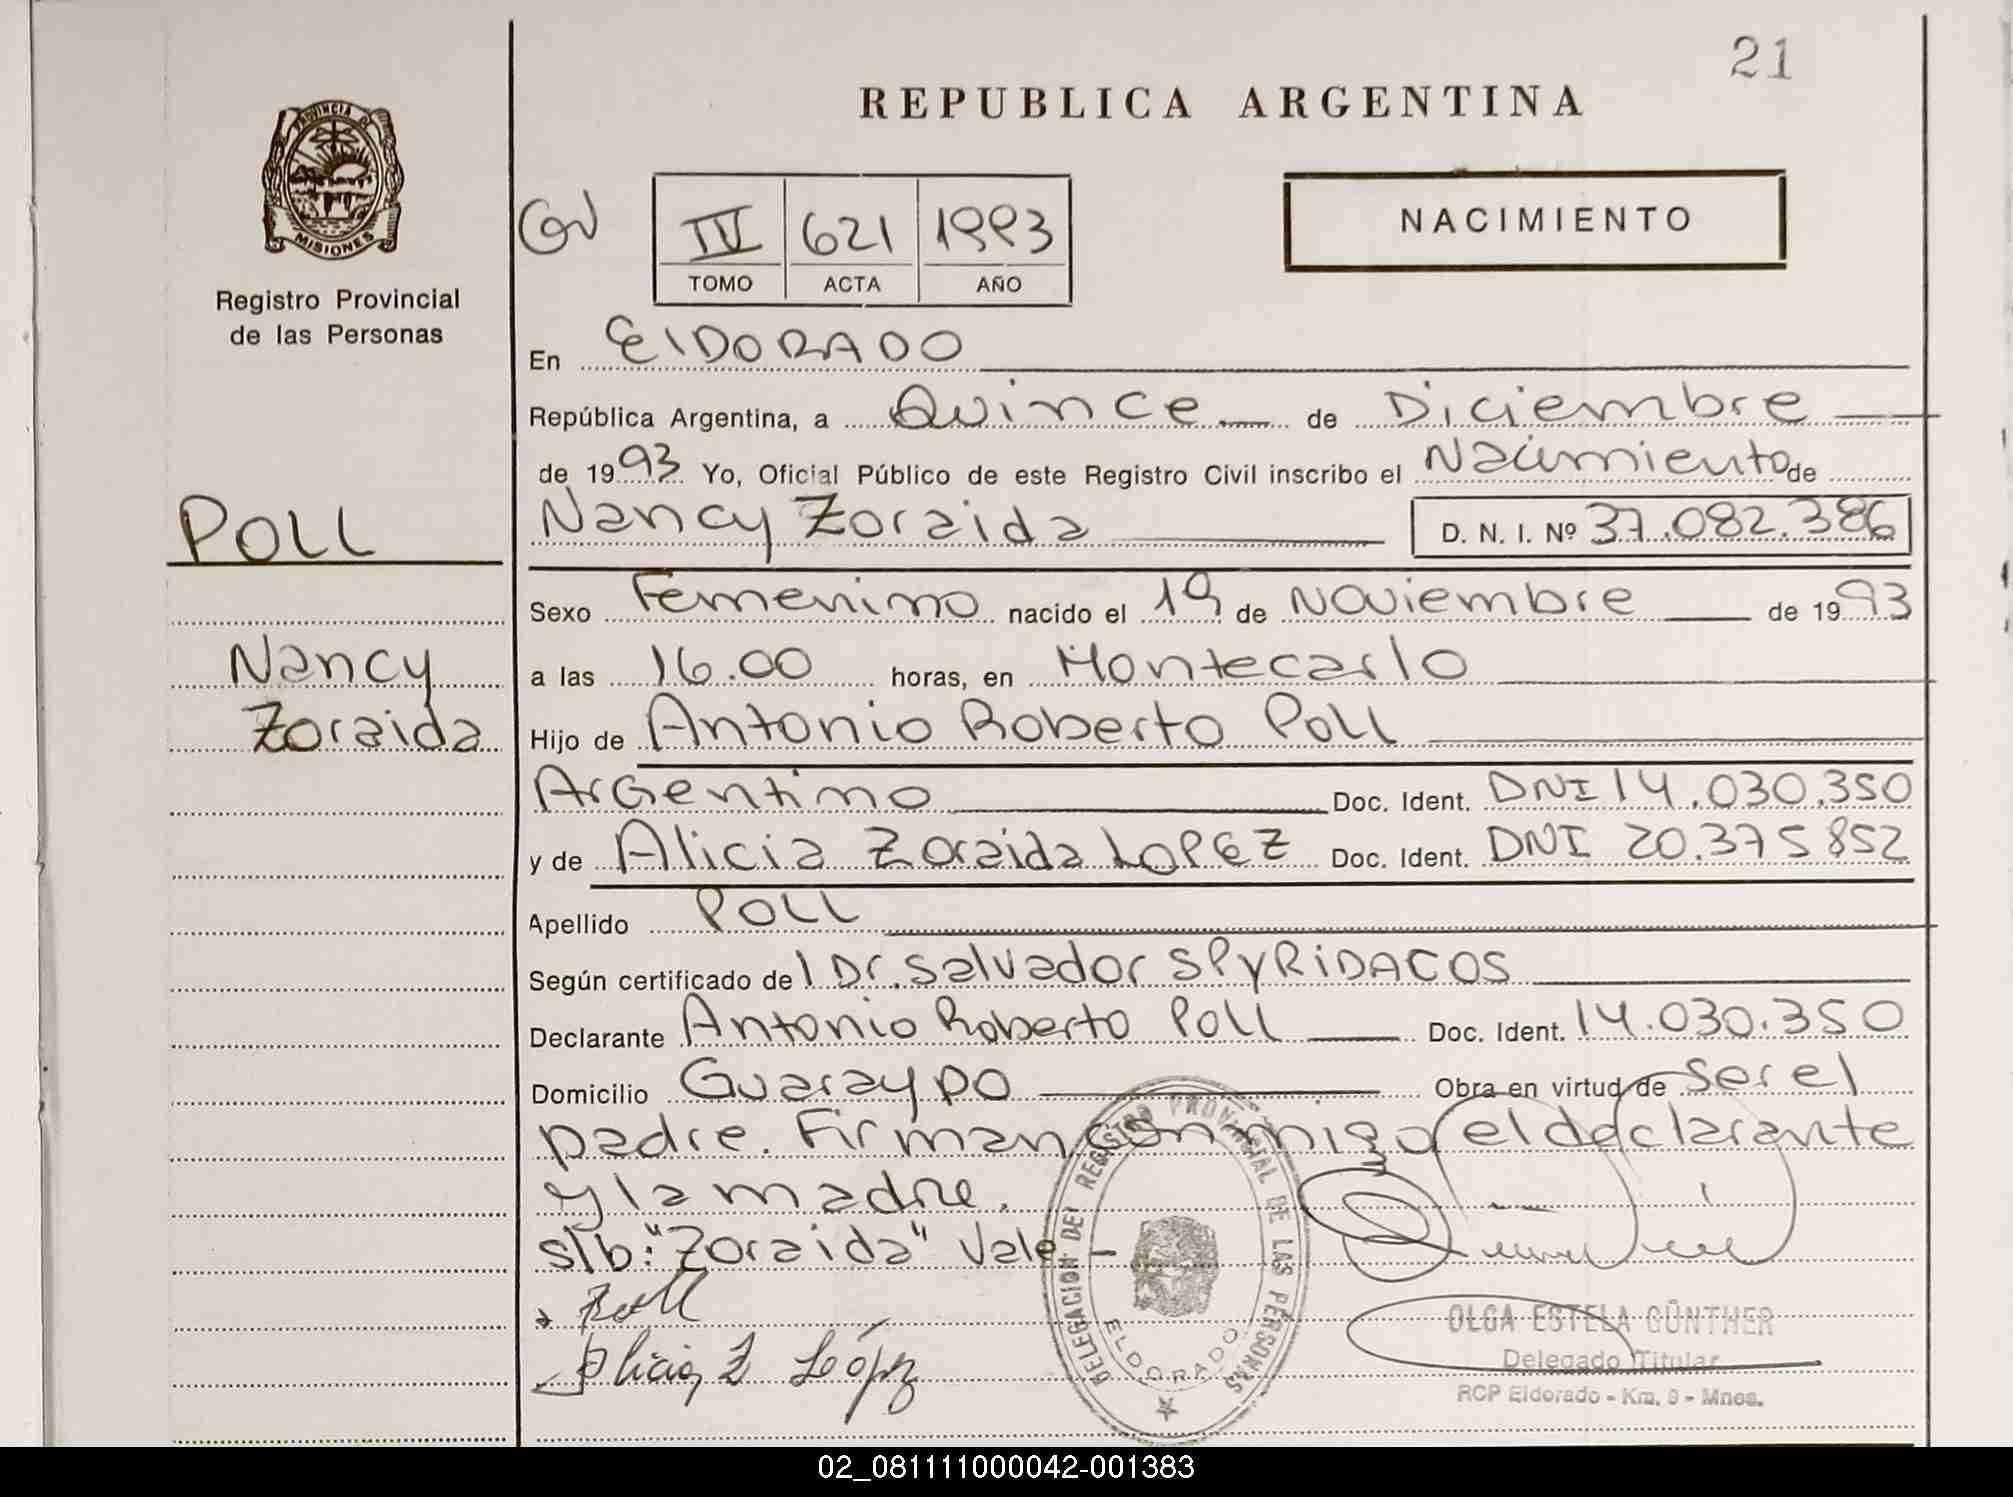 21
REPUBLICA ARGENTINA
PROVINCIA DE
MISIONES
Registro Provincial
de las Personas
IV 621 1993
TOMO ACTA AÑO
NACIMIENTO
En ElDORADO
República Argentina, a Quince de Diciembre
de 1993 Yo, Oficial Público de este Registro Civil inscribo el Nacimiento de
POLL
Nancy Zoraida D. N. I. Nº 37.082.386
Sexo Femenino nacido el 19 de Noviembre de 1993
Nancy
a las 16.00 horas, en Montecarlo
Zoraida
Hijo de Antonio Roberto Poll
Argentino Doc. Ident. DNI 14.030.350
y de Alicia Zoraida LOPEZ Doc. Ident. DNI 20.375852
Apellido POLL
Según certificado de l Dr. Salvador SPYRIDACOS
Declarante Antonio Roberto Poll Doc. Ident. 14.030.350
Domicilio Guaraypo Obra en virtud de ser el
padre. Firman conmigo el declarante
y la madre.
s/b: "Zoraida" Vale -
Poll
Alicia Z López
DELEGACION DEL REGISTRO PROVINCIAL DE LAS PERSONAS
ELDORADO
OLGA ESTELA GÜNTHER
Delegado Titular
RCP Eldorado - Km. 9 - Mnes.
02_081111000042-001383